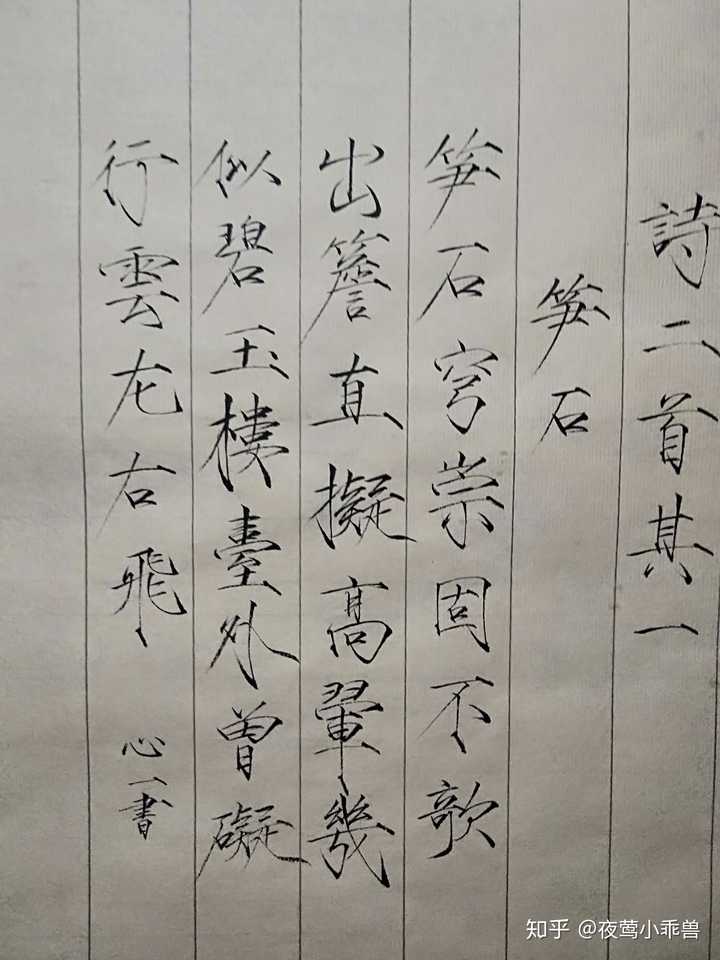 詩二首其一
笋石
笋石穹崇固不欹
出簷直擬高翬幾
似碧玉樓臺外曾礙
行雲左右飛
心一書
知乎 @夜莺小乖兽